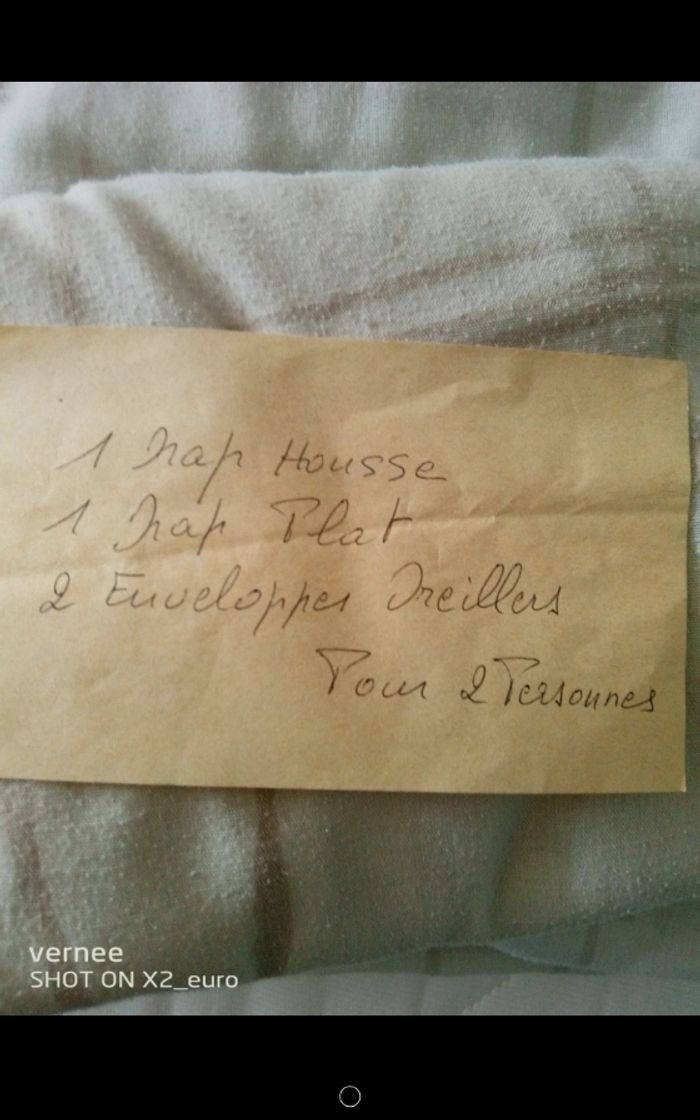 1 Drap Housse
1 Drap Plat
2 Enveloppes Oreillers
Pour 2 Personnes
vernee
SHOT ON X2_euro